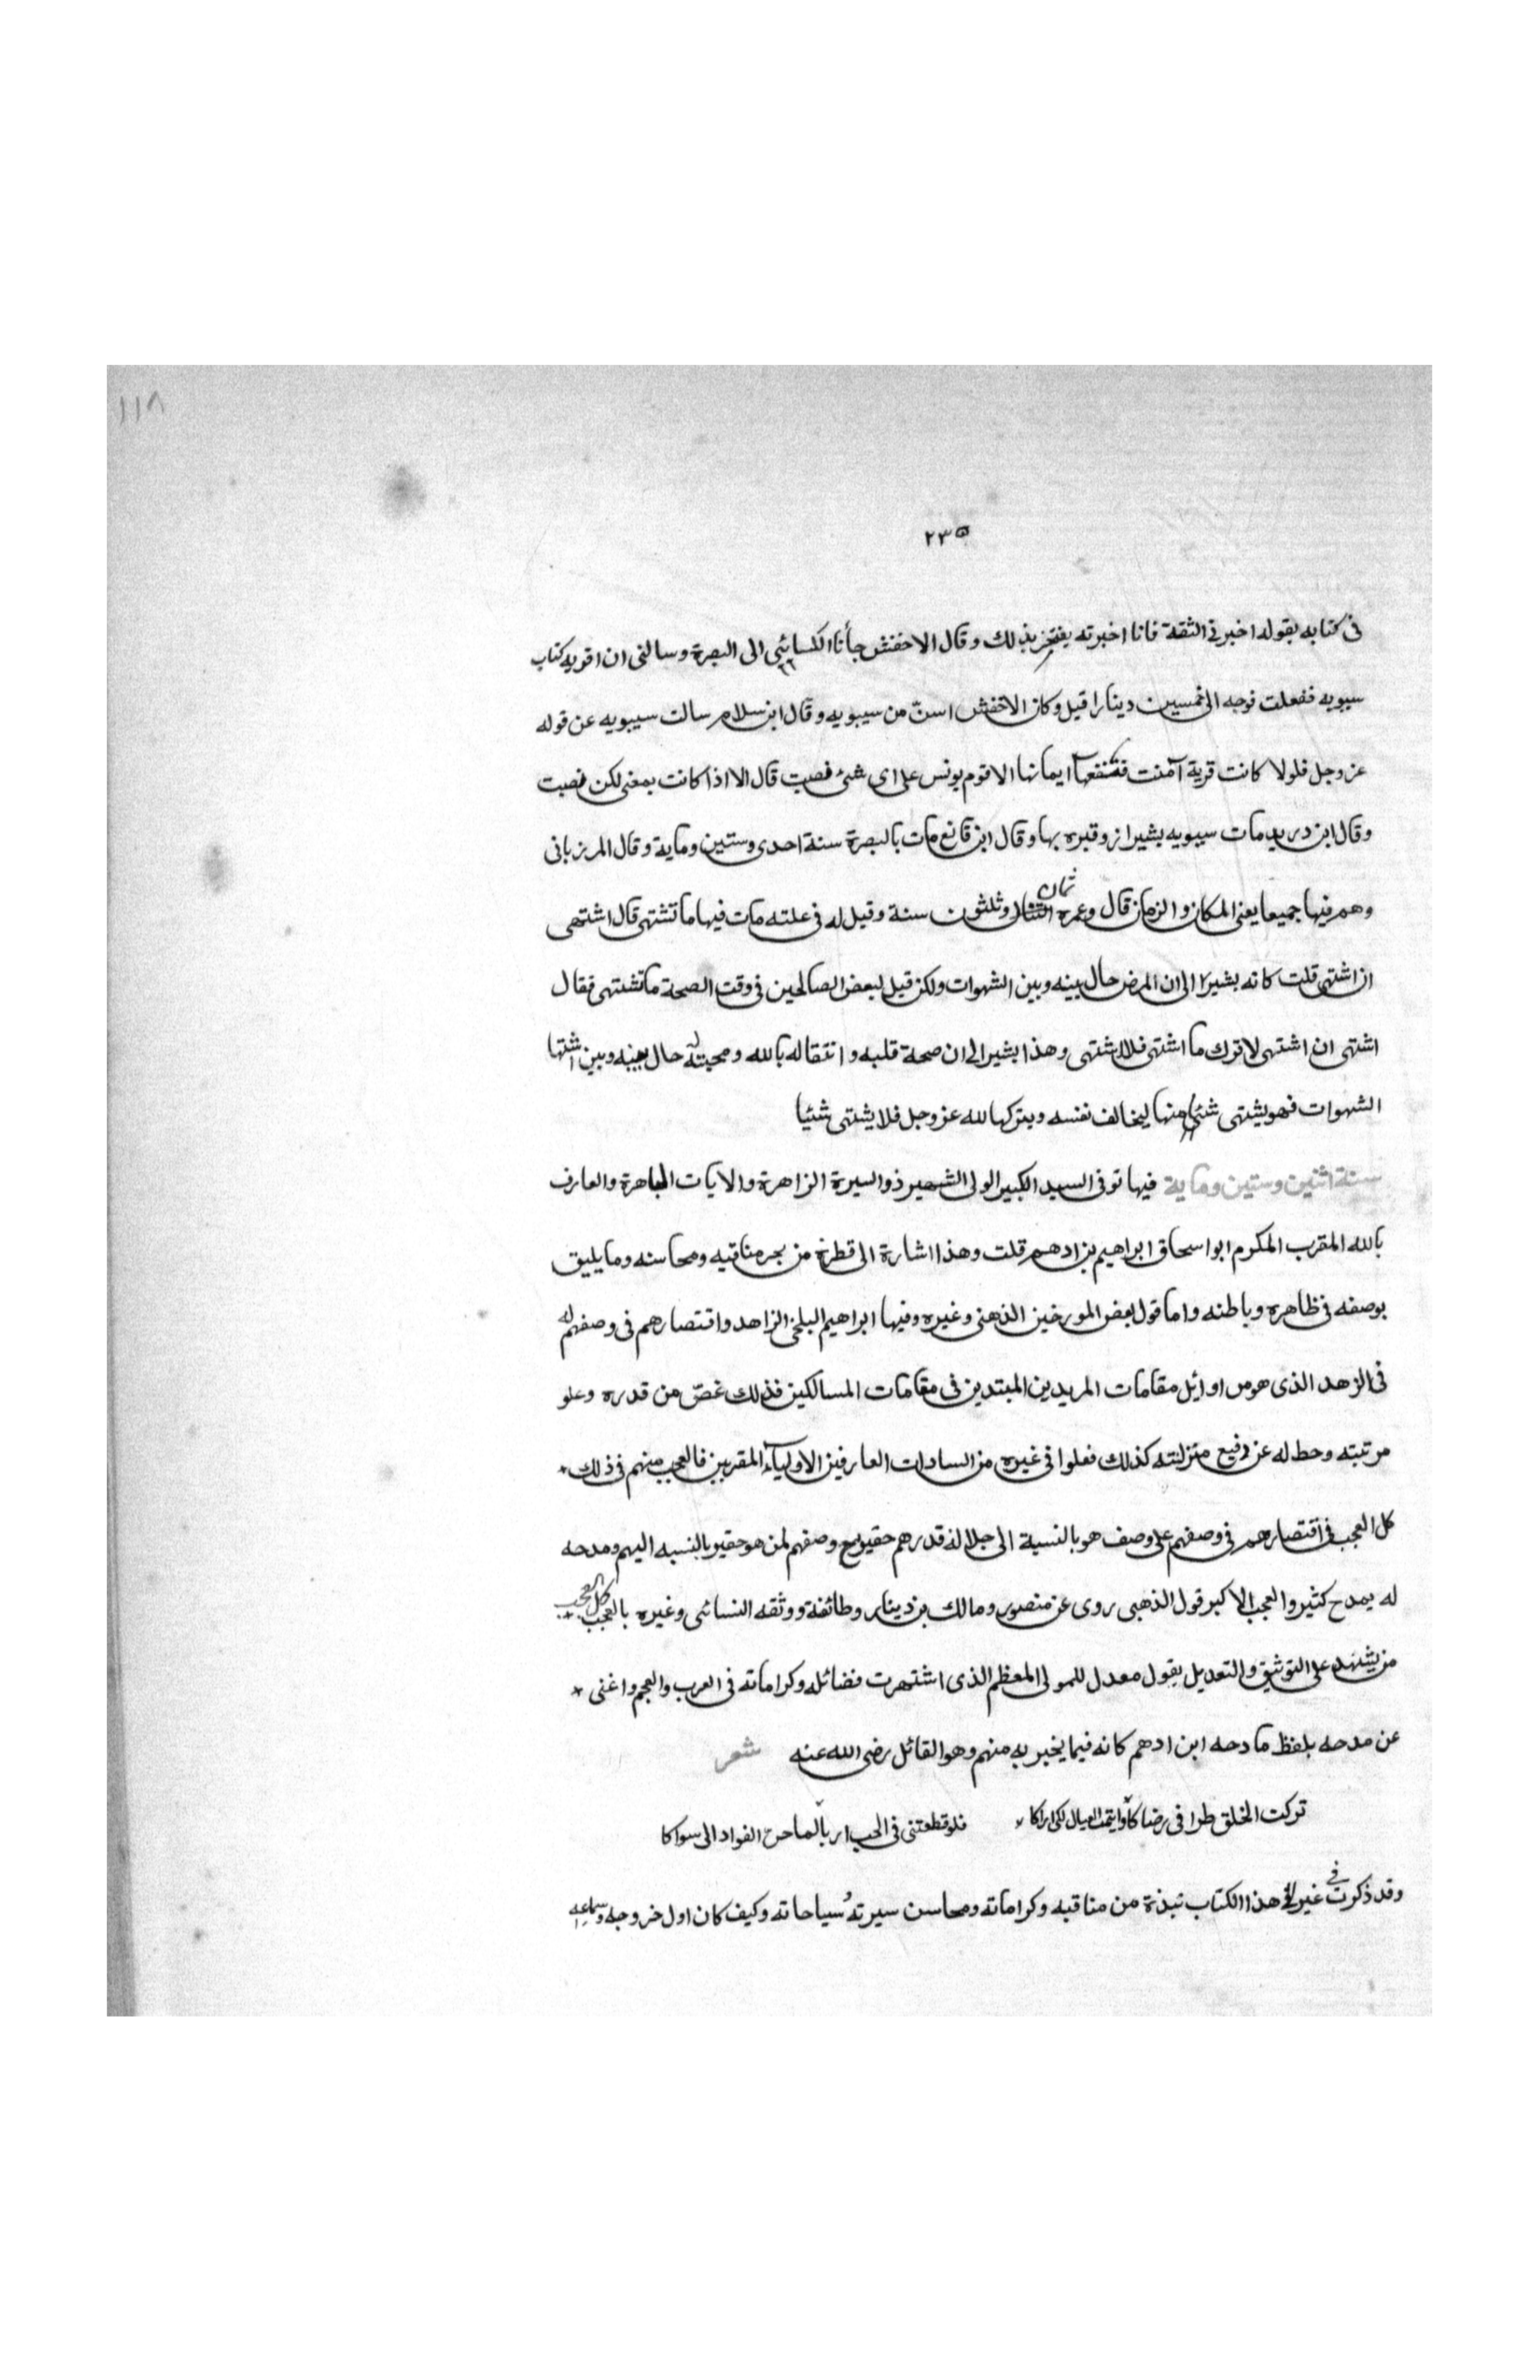 ١١٨
٢٣٥
في كتابه بقوله اخبرني الثقة فانا اخبرته يفتخر بذلك وقال الاخفش جأنا الكسائي الى البصرة وسالنى ان اقريه كتاب
سيبويه ففعلت فوجه الى خمسين دينارا قيل وكان الاخفش اسنّ من سيبويه وقال ابن سلام سالت سيبويه عن قوله
عز وجل فلولا كانت قرية آمنت فنفعها ايمانها الا قوم يونس على اى شئ نصبت قال الا اذا كانت بمعنى لكن نصبت
وقال ابن دريد مات سيبويه بشيراز وقبره بها وقال ابن قانع مات بالبصرة سنة احدى وستين وماية وقال المرزبانى
وهم فيها جميعا يعنى المكان والزمان قال وعمره ثمان وثلثون سنة وقيل له فى علته مات فيها ما تشتهى قال اشتهى
ان اشتهى قلت كانه يشير الى ان المرض حال بينه وبين الشهوات ولكن قيل لبعض الصالحين فى وقت الصحة ما تشتهى فقال
اشتهى ان اشتهى لاترك ما اشتهى فلا اشتهى وهذا يشير الى ان صحة قلبه وانتقاله بالله ومحبته له حال بينه وبين اشتها
الشهوات فهو يشتهى شئيا منها ليخالف نفسه ويتركها لله عز وجل فلا يشتهى شئيا
سنة اثنين وستين وماية فيها توفى السيد الكبير الولى الشهير ذو السيرة الزاهرة والايات الباهرة والعارف
بالله المقرب المكرم ابو اسحاق ابراهيم بن ادهم قلت وهذا اشارة الى قطرة من بحر مناقبه ومحاسنه وما يليق
بوصفه فى ظاهره وباطنه واما قول بعض المورخين الذهبى وغيره وفيها ابراهيم البلخى الزاهد واقتصارهم فى وصفهم له
فى الزهد الذى هو من اوائل مقامات المريدين المبتدين فى مقامات المسالكين فذلك غضّ من قدره وعلو
مرتبته وحط له عن رفيع منزلته كذلك فعلوا فى غيره من السادات العارفين الاوليآء المقربين فالعجب منهم فى ذلك
كل العجب فى اقتصارهم فى وصفهم على وصف هو بالنسبة الى جلالة قدرهم حقير مع وصفهم لمن هو حقير بالنسبه اليهم ومدحه
له بمدح كثير والعجب الاكبر قول الذهبى روى عن منصور ومالك بن دينار وطائفة ووثقه النسائى وغيره بالعجب كل العجب
من يشهد على التوثيق والتعديل بقول معدل للمولى المعظم الذى اشتهرت فضائله وكراماته فى العرب والعجم واغنى
عن مدحه بلفظ مادحه ابن ادهم كانه فيما يخبر به منهم وهو القائل رضى الله عنه شعر
تركت الخلق طرا فى رضاكا وايتمت العيال لكى اراكا فلو قطعتنى فى الحب اربا لما حن الفواد الى سواكا
وقد ذكرت فى غير هذا الكتاب نبذة من مناقبه وكراماته ومحاسن سيرته وسياحاته وكيف كان اول خروجه وسماعه